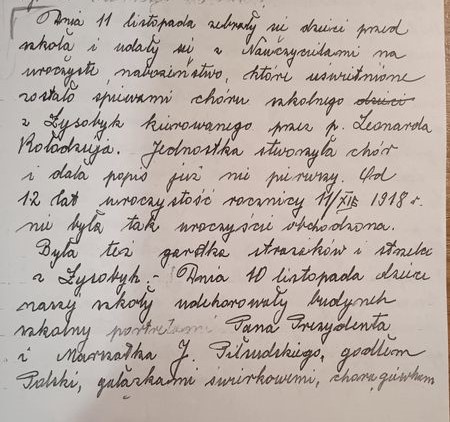 Dnia 11 listopada zebrały się dzieci przed
szkołą i udały się z Nauczycielami na
uroczyste nabożeństwo, które uświetnione
zostało śpiewami chóru szkolnego dzieci
z Łysobyk kierowanego przez p. Leonarda
Kołodzieja. Jednostka stworzyła chór
i dała popis już nie pierwszy. Od
12 lat uroczystość rocznicy 11/XI 1918 r.
nie była tak uroczyście obchodzona.
Była też garstka strażaków i strzelca
z Łysobyk. - Dnia 10 listopada dzieci
naszej szkoły udekorowały budynek
szkolny portretami Pana Prezydenta
i Marszałka J. Piłsudskiego, godłem
Polski, gałązkami świerkowemi, chorągiewkam